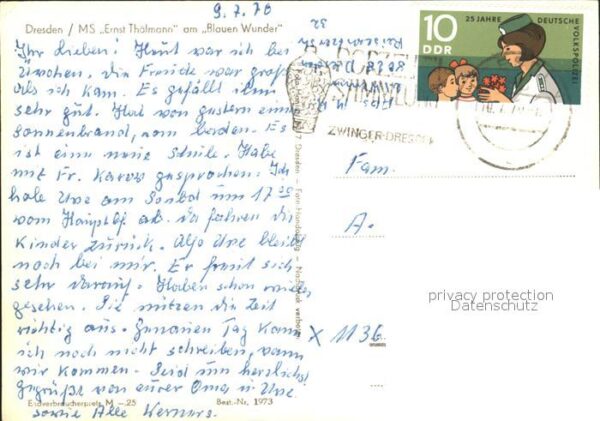 9.7.70
Dresden / MS „Ernst Thälmann" am „Blauen Wunder"
Ihr Lieben! Heut war ich bei
Uwchen. Die Freude war groß
als ich kam. Es gefällt ihm
sehr gut. Hat von gestern einen
Sonnenbrand, vom baden. Es
ist eine neue Schule. Habe
mit Fr. Karow gesprochen. Ich
hole Uwe am Sonbd um 17 30
vom Hauptbf ab. da fahren die
Kinder zurück. Also Uwe bleibt
noch bei mir. Er freut sich
sehr darauf. Haben schon viel
gesehen. Sie nützen die Zeit
richtig aus. Genauen Tag kann
ich noch nicht schreiben, wann
wir kommen. Seid nun herzlichst
gegrüßt von eurer Oma u Uwe.
sowie Alle Werners.
Endverbraucherpreis M —.25
Best.-Nr. 1973
32
10
DDR
25 JAHRE DEUTSCHE
VOLKSPOLIZEI
ZWINGER-DRESDEN
Dresden — Farm Handabzug — Nachdruck verboten
Fam.
A.
X 1136
privacy protection
Datenschutz